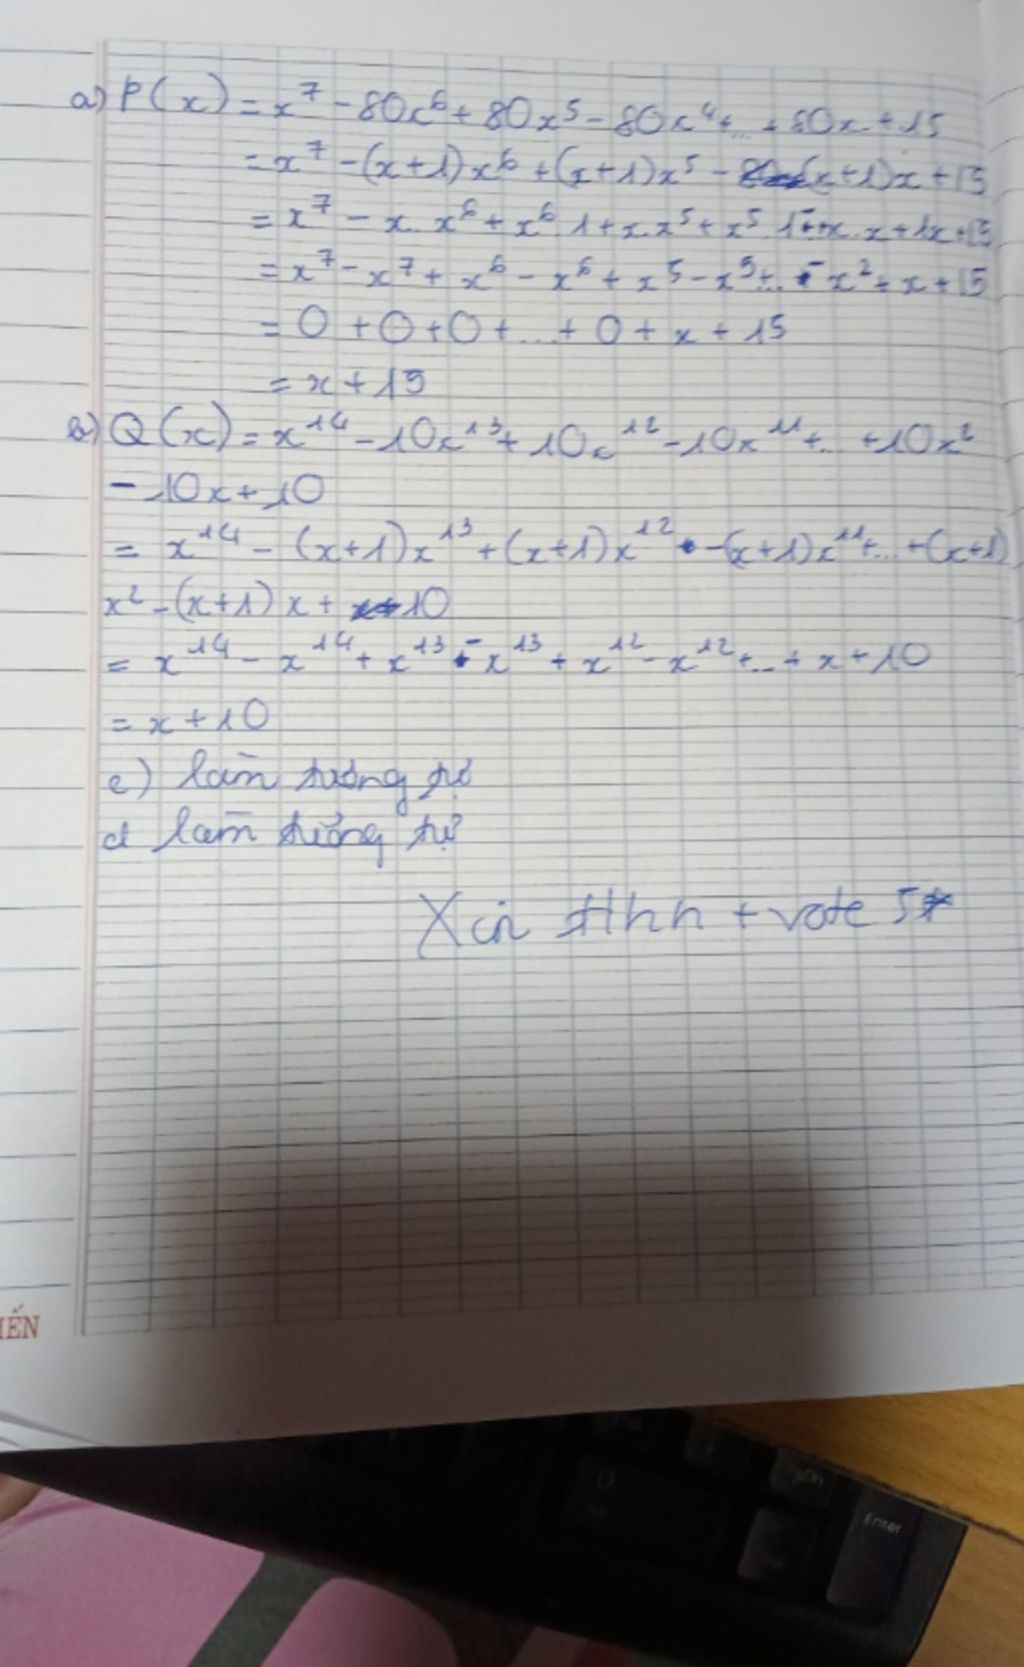 a) P(x) = x⁷ - 80x⁶ + 80x⁵ - 80x⁴ + ... + 80x + 15
= x⁷ - (x+1)x⁶ + (x+1)x⁵ - (x+1)x + 15
= x⁷ - x. x⁶ + x⁶.1 + x.x⁵ + x⁵.1 - ... + x.x + 1x + 15
= x⁷ - x⁷ + x⁶ - x⁶ + x⁵ - x⁵ + ... - x² + x + 15
= 0 + 0 + 0 + ... + 0 + x + 15
= x + 15
b) Q(x) = x¹⁴ - 10x¹³ + 10x¹² - 10x¹¹ + ... + 10x²
- 10x + 10
= x¹⁴ - (x+1)x¹³ + (x+1)x¹² - (x+1)x¹¹ + ... + (x+1)
x² - (x+1)x + 10
= x¹⁴ - x¹⁴ + x¹³ - x¹³ + x¹² - x¹² + ... + x + 10
= x + 10
c) làm tương tự
d làm tương tự
Xin tlhn + vote 5*
IẾN
Enter